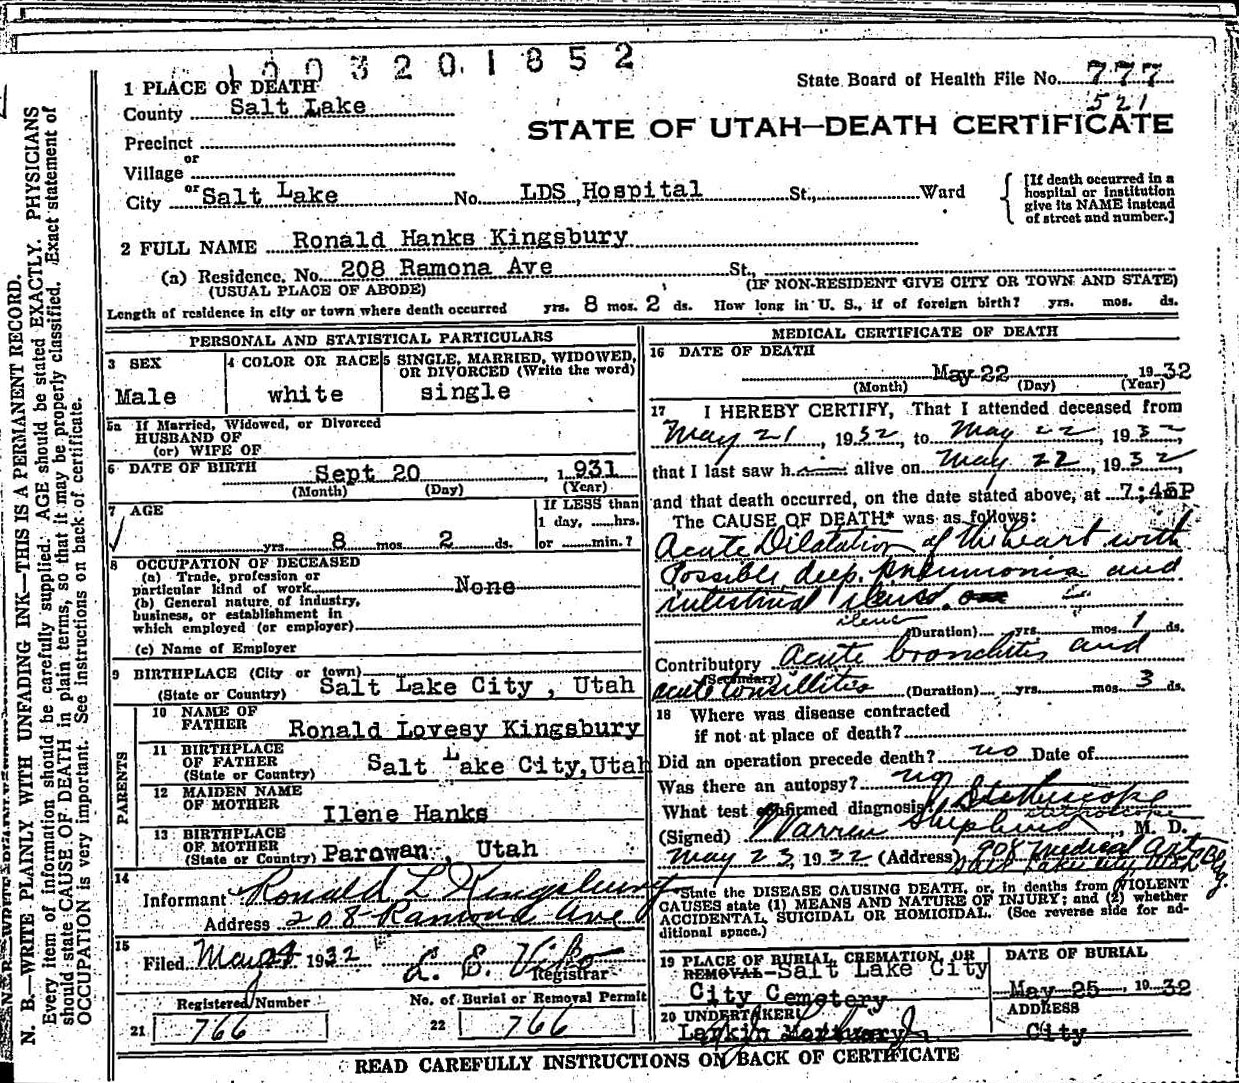 1 0 0 3 2 0 1 8 5 2
State Board of Health File No. 777
521
1 PLACE OF DEATH
County Salt Lake
STATE OF UTAH—DEATH CERTIFICATE
Precinct
or
Village
or
City Salt Lake No. LDS Hospital St., Ward
[If death occurred in a hospital or institution give its NAME instead of street and number.]
2 FULL NAME Ronald Hanks Kingsbury
(a) Residence, No. 208 Ramona Ave St.,
(USUAL PLACE OF ABODE) (IF NON-RESIDENT GIVE CITY OR TOWN AND STATE)
Length of residence in city or town where death occurred yrs. 8 mos. 2 ds. How long in U. S., if of foreign birth? yrs. mos. ds.
PERSONAL AND STATISTICAL PARTICULARS
3 SEX
Male
4 COLOR OR RACE
white
5 SINGLE, MARRIED, WIDOWED,
OR DIVORCED (Write the word)
single
5a If Married, Widowed, or Divorced
HUSBAND OF
(or) WIFE OF
6 DATE OF BIRTH Sept 20, 1931
(Month) (Day) (Year)
7 AGE
yrs. 8 mos. 2 ds.
If LESS than
1 day, hrs.
or min.?
8 OCCUPATION OF DECEASED
(a) Trade, profession or
particular kind of work None
(b) General nature of industry,
business, or establishment in
which employed (or employer)
(c) Name of Employer
9 BIRTHPLACE (City or town)
(State or Country) Salt Lake City, Utah
PARENTS
10 NAME OF
FATHER Ronald Lovesy Kingsbury
11 BIRTHPLACE
OF FATHER
(State or Country) Salt Lake City, Utah
12 MAIDEN NAME
OF MOTHER Ilene Hanks
13 BIRTHPLACE
OF MOTHER
(State or Country) Parowan, Utah
14
Informant Ronald L Kingsbury
Address 208 Ramona Ave
15
Filed May 1932 L. E. Viko
Registrar
Registered Number
21 766
No. of Burial or Removal Permit
22 766
MEDICAL CERTIFICATE OF DEATH
16 DATE OF DEATH
May 22, 1932
(Month) (Day) (Year)
17 I HEREBY CERTIFY, That I attended deceased from
May 21, 1932, to May 22, 1932,
that I last saw h alive on May 22, 1932,
and that death occurred, on the date stated above, at 7:45P
The CAUSE OF DEATH* was as follows:
Acute Dilatation of the heart with
Possible deep pneumonia and
intestinal ileus.
ileus
(Duration) yrs. mos. 1 ds.
Contributory Acute bronchitis and
(Secondary)
acute tonsillitis (Duration) yrs. mos. 3 ds.
18 Where was disease contracted
if not at place of death?
Did an operation precede death? no Date of
Was there an autopsy? no
What test confirmed diagnosis? Stethoscope
(Signed) Warren Shepherd, M. D.
May 23, 1932 (Address) 908 Medical Arts Bldg.
Salt Lake City Utah
*State the DISEASE CAUSING DEATH, or, in deaths from VIOLENT
CAUSES state (1) MEANS AND NATURE OF INJURY; and (2) whether
ACCIDENTAL, SUICIDAL OR HOMICIDAL. (See reverse side for ad-
ditional space.)
19 PLACE OF BURIAL, CREMATION, OR
REMOVAL Salt Lake City
City Cemetery
DATE OF BURIAL
May 25, 1932
20 UNDERTAKER
Larkin Mortuary
ADDRESS
City
READ CAREFULLY INSTRUCTIONS ON BACK OF CERTIFICATE
N. B.—WRITE PLAINLY WITH UNFADING INK—THIS IS A PERMANENT RECORD.
Every item of information should be carefully supplied. AGE should be stated EXACTLY. PHYSICIANS
should state CAUSE OF DEATH in plain terms, so that it may be properly classified. Exact statement of
OCCUPATION is very important. See instructions on back of certificate.